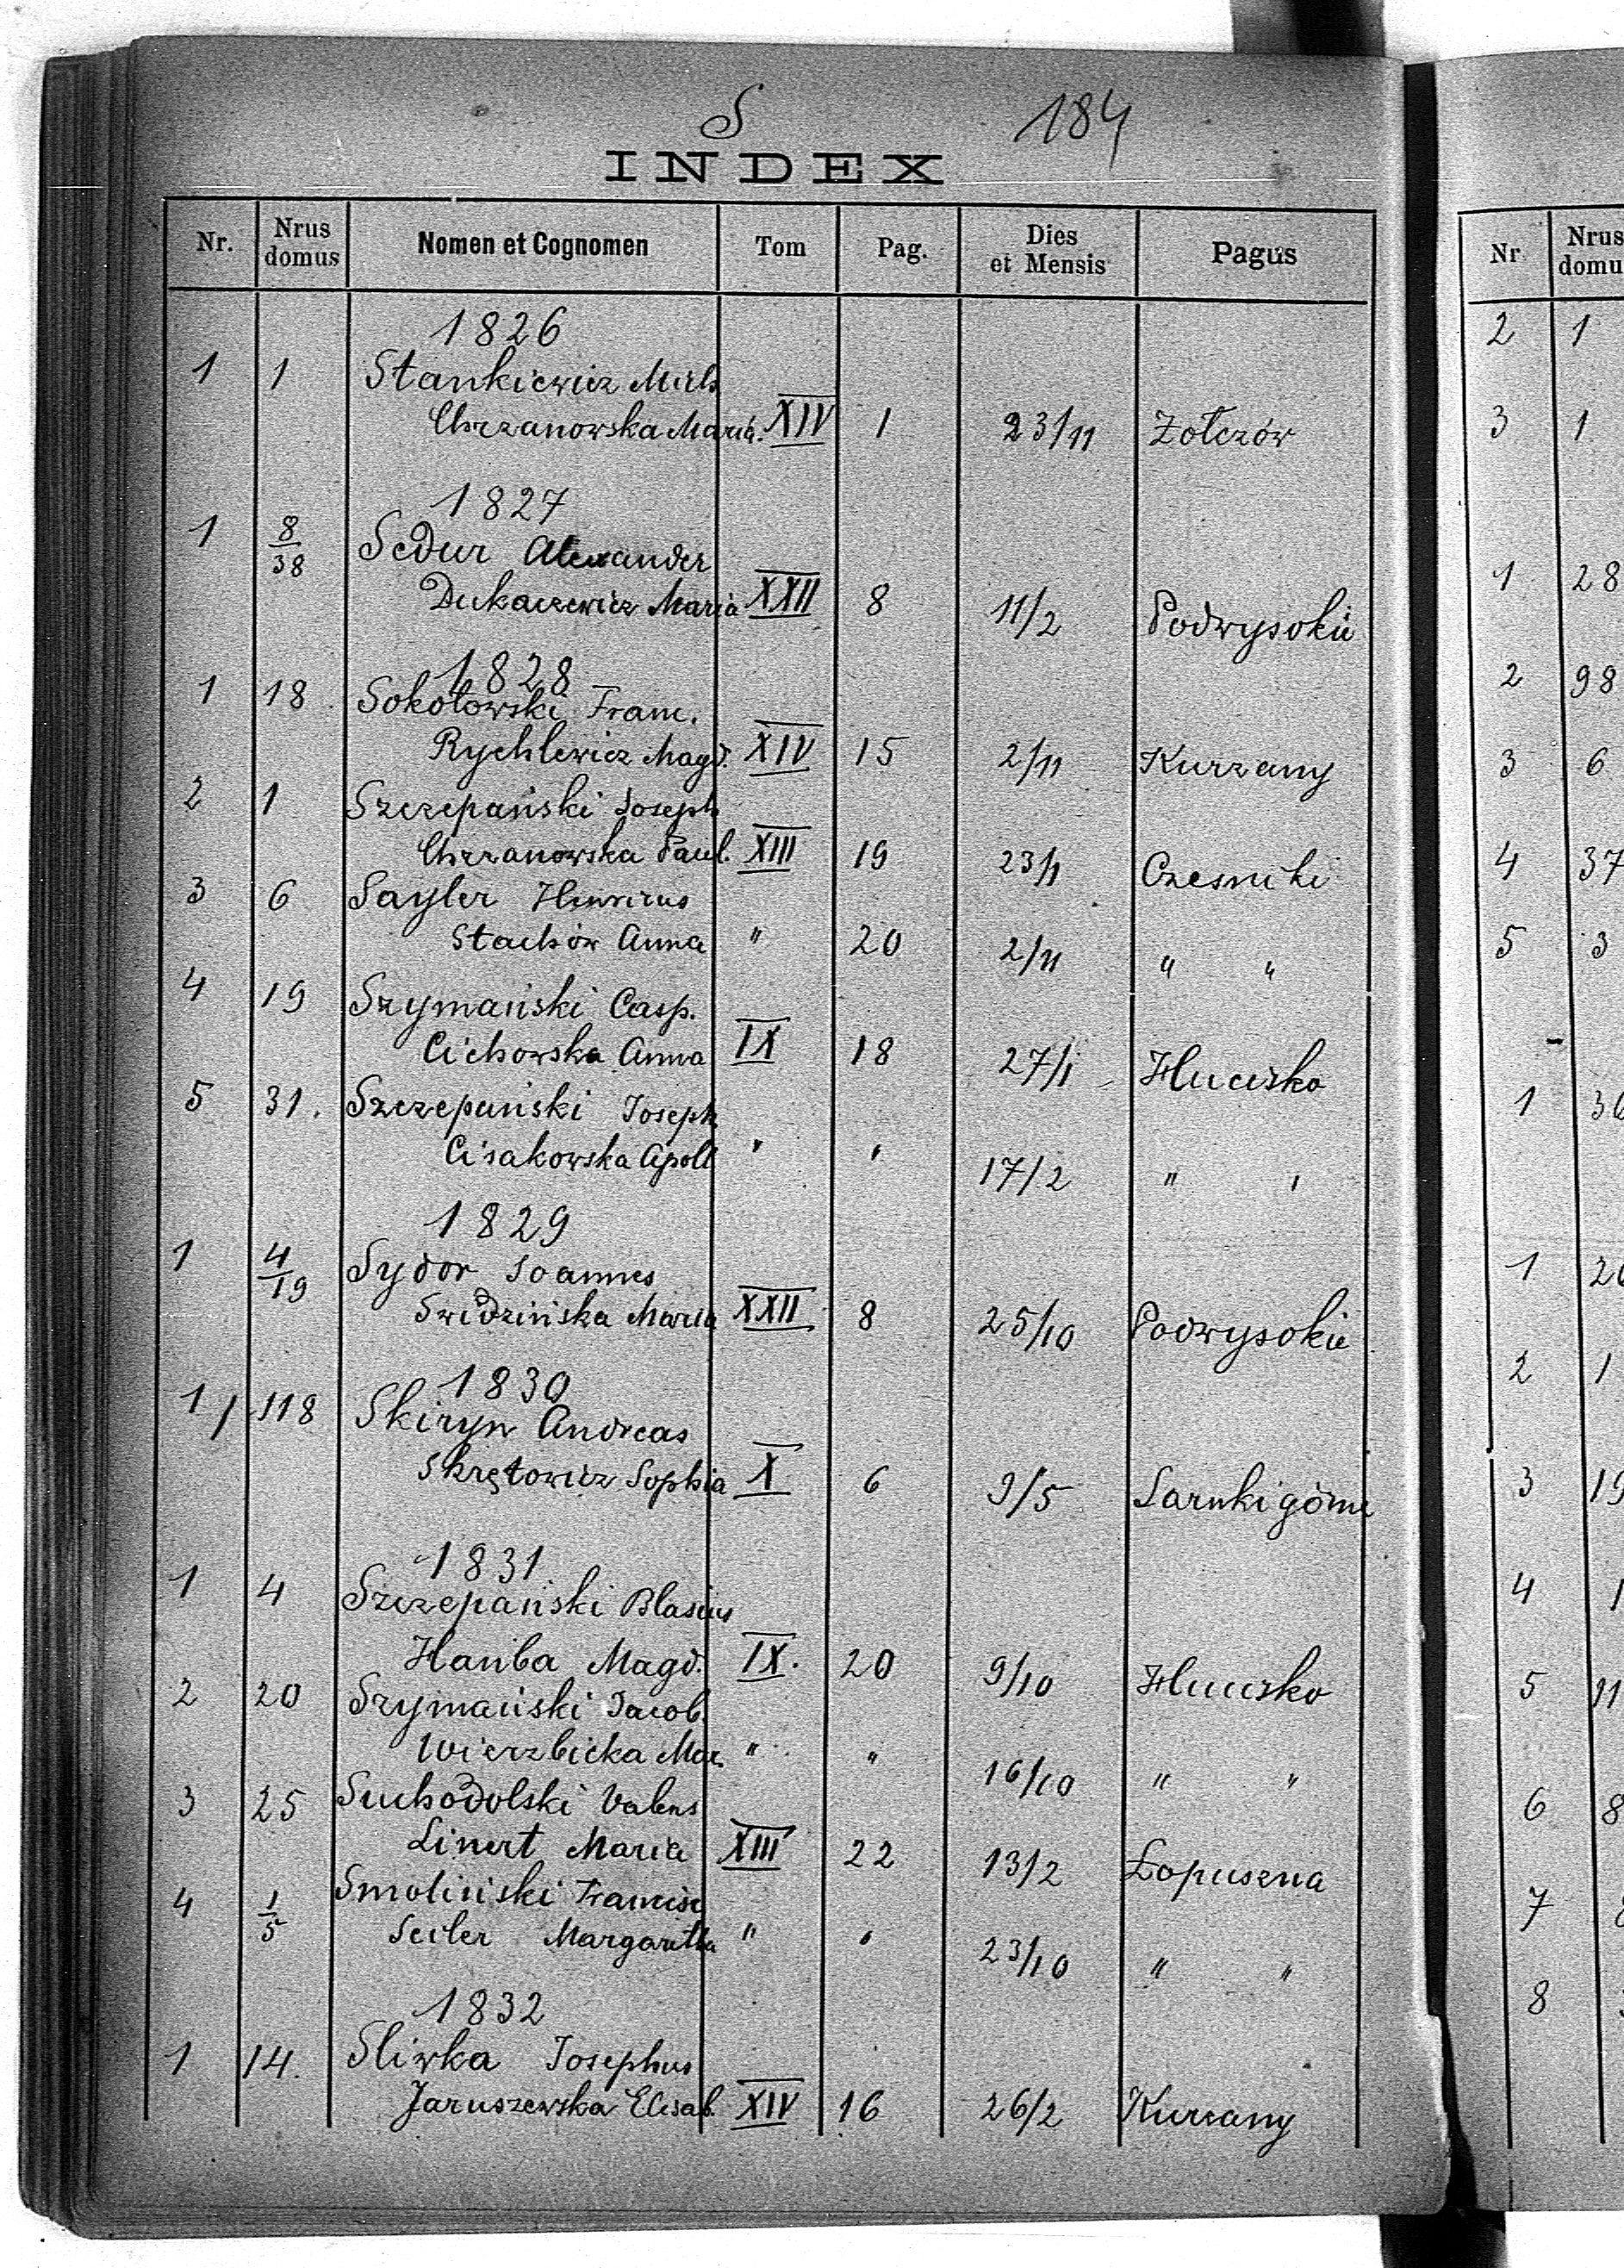 S 184
INDEX
Nr. Nrus domus Nomen et Cognomen Tom Pag. Dies et Mensis Pagus
1826
1 1 Stankiewicz Mich
Chrzanowska Maria. XIV 1 23/11 Żołczów
1827
1 8/38 Sedur Alexander
Dukaczewicz Maria XXII 8 11/2 Podwysokie
1828
1 18 Sokołowski Franc.
Rychlewicz Magd. XIV 15 2/11 Kurzany
2 1 Szczepański Joseph
Chrzanowska Paul. XIII 19 23/1 Czesniki
3 6 Sayler Henricus
Stachów Anna " 20 2/11 " "
4 19 Szymański Casp.
Cichowska Anna IX 18 27/1 Hucisko
5 31. Szczepański Joseph
Cisakowska Apoll " " 17/2 " "
1829
1 4/19 Sydor Joannes
Swidzińska Maria XXII 8 25/10 Podwysokie
1830
1/ 118 Skiryn Andreas
Skrętowicz Sophia X 6 9/5 Sarnki górne
1831
1 4 Szczepański Blasius
Hanba Magd. IX. 20 9/10 Hucisko
2 20 Szymański Jacob.
Wierzbicka Mar. " " 16/10 " "
3 25 Suchodolski Valens
Linert Maria XIII 22 13/2 Łopuszna
4 1/5 Smoliński Francisc
Seiler Margaretha " " 23/10 " "
1832
1 14. Sliwka Josephus
Jaruszewska Elisab. XIV 16 26/2 Kurzany
Nr Nrus domu
2 1
3 1
1 28
2 98
3 6
4 37
5 3
1 36
1 20
2 1
3 19
4 1
5 11
6 8
7
8